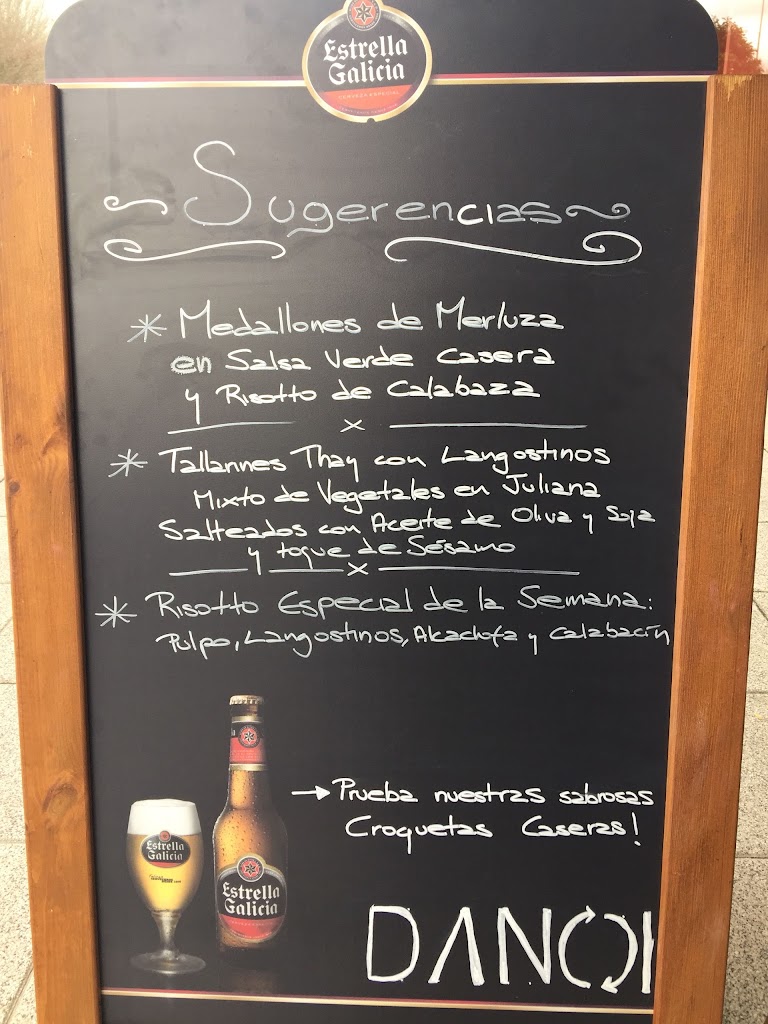 Estrella
Galicia
CERVEZA ESPECIAL
Sugerencias
* Medallones de Merluza
en Salsa Verde Casera
y Risotto de Calabaza
x
* Tallannes Thay con Langostinos
Mixto de Vegetales en Juliana
Salteados con Aceite de Oliva y Soja
y toque de Sésamo
x
* Risotto Especial de la Semana:
Pulpo, Langostinos, Alcachofa y Calabacín
→ Prueba nuestras sabrosas
Croquetas Caseras!
Estrella
Galicia
Estrella
Galicia